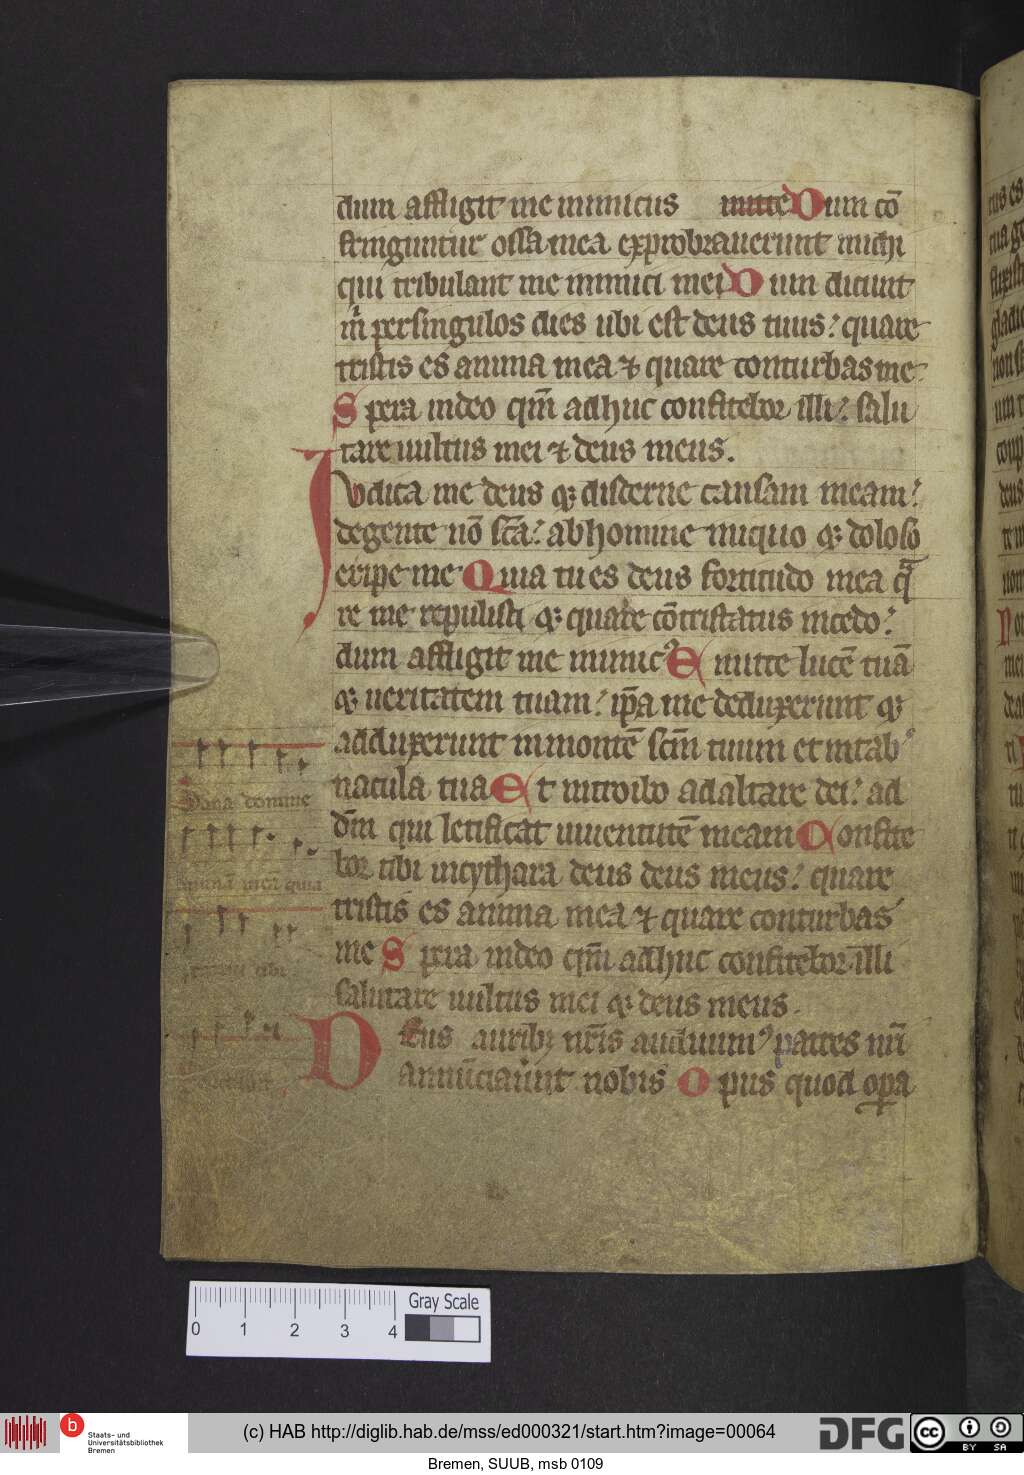 dum affligit me inimicus mitte Dum cō
fringuntur ossa mea exprobrauerunt michi
qui tribulant me inimici mei Dum dicunt
m̄ persingulos dies ubi est deus tuus: quare
tristis es anima mea ⁊ quare conturbas me
Spera indeo qm̄ adhuc confitebor illi: salu
tare uultus mei ⁊ deus meus.
Iudica me deus ⁊ discerne causam meam:
degente nō scā: abhomine iniquo ⁊ doloso
eripe me Quia tu es deus fortitudo mea qa
re me repulisti ⁊ quare cōtristatus incedo:
dum affligit me inimic⁹ Emitte lucē tuā
⁊ ueritatem tuam: ip̄a me deduxerunt ⁊
adduxerunt inmontē scm̄ tuum et intab
nacula tua Et introibo adaltare dei: ad
dm̄ qui letificat iuuentutē meam Confite
bor tibi incythara deus deus meus: quare
tristis es anima mea ⁊ quare conturbas
me Spera indeo qm̄ adhuc confitebor illi
salutare uultus mei ⁊ deus meus.
Deus aurib⁊ nr̄is audiuim⁹ patres nr̄i
annūciauer̄nt nobis Opus quod opa
Sana domine
animā meā quia
peccaui tibi
0 1 2 3 4
Gray Scale
b Staats- und
Universitätsbibliothek
Bremen
(c) HAB http://diglib.hab.de/mss/ed000321/start.htm?image=00064
DFG
cc BY SA
Bremen, SUUB, msb 0109